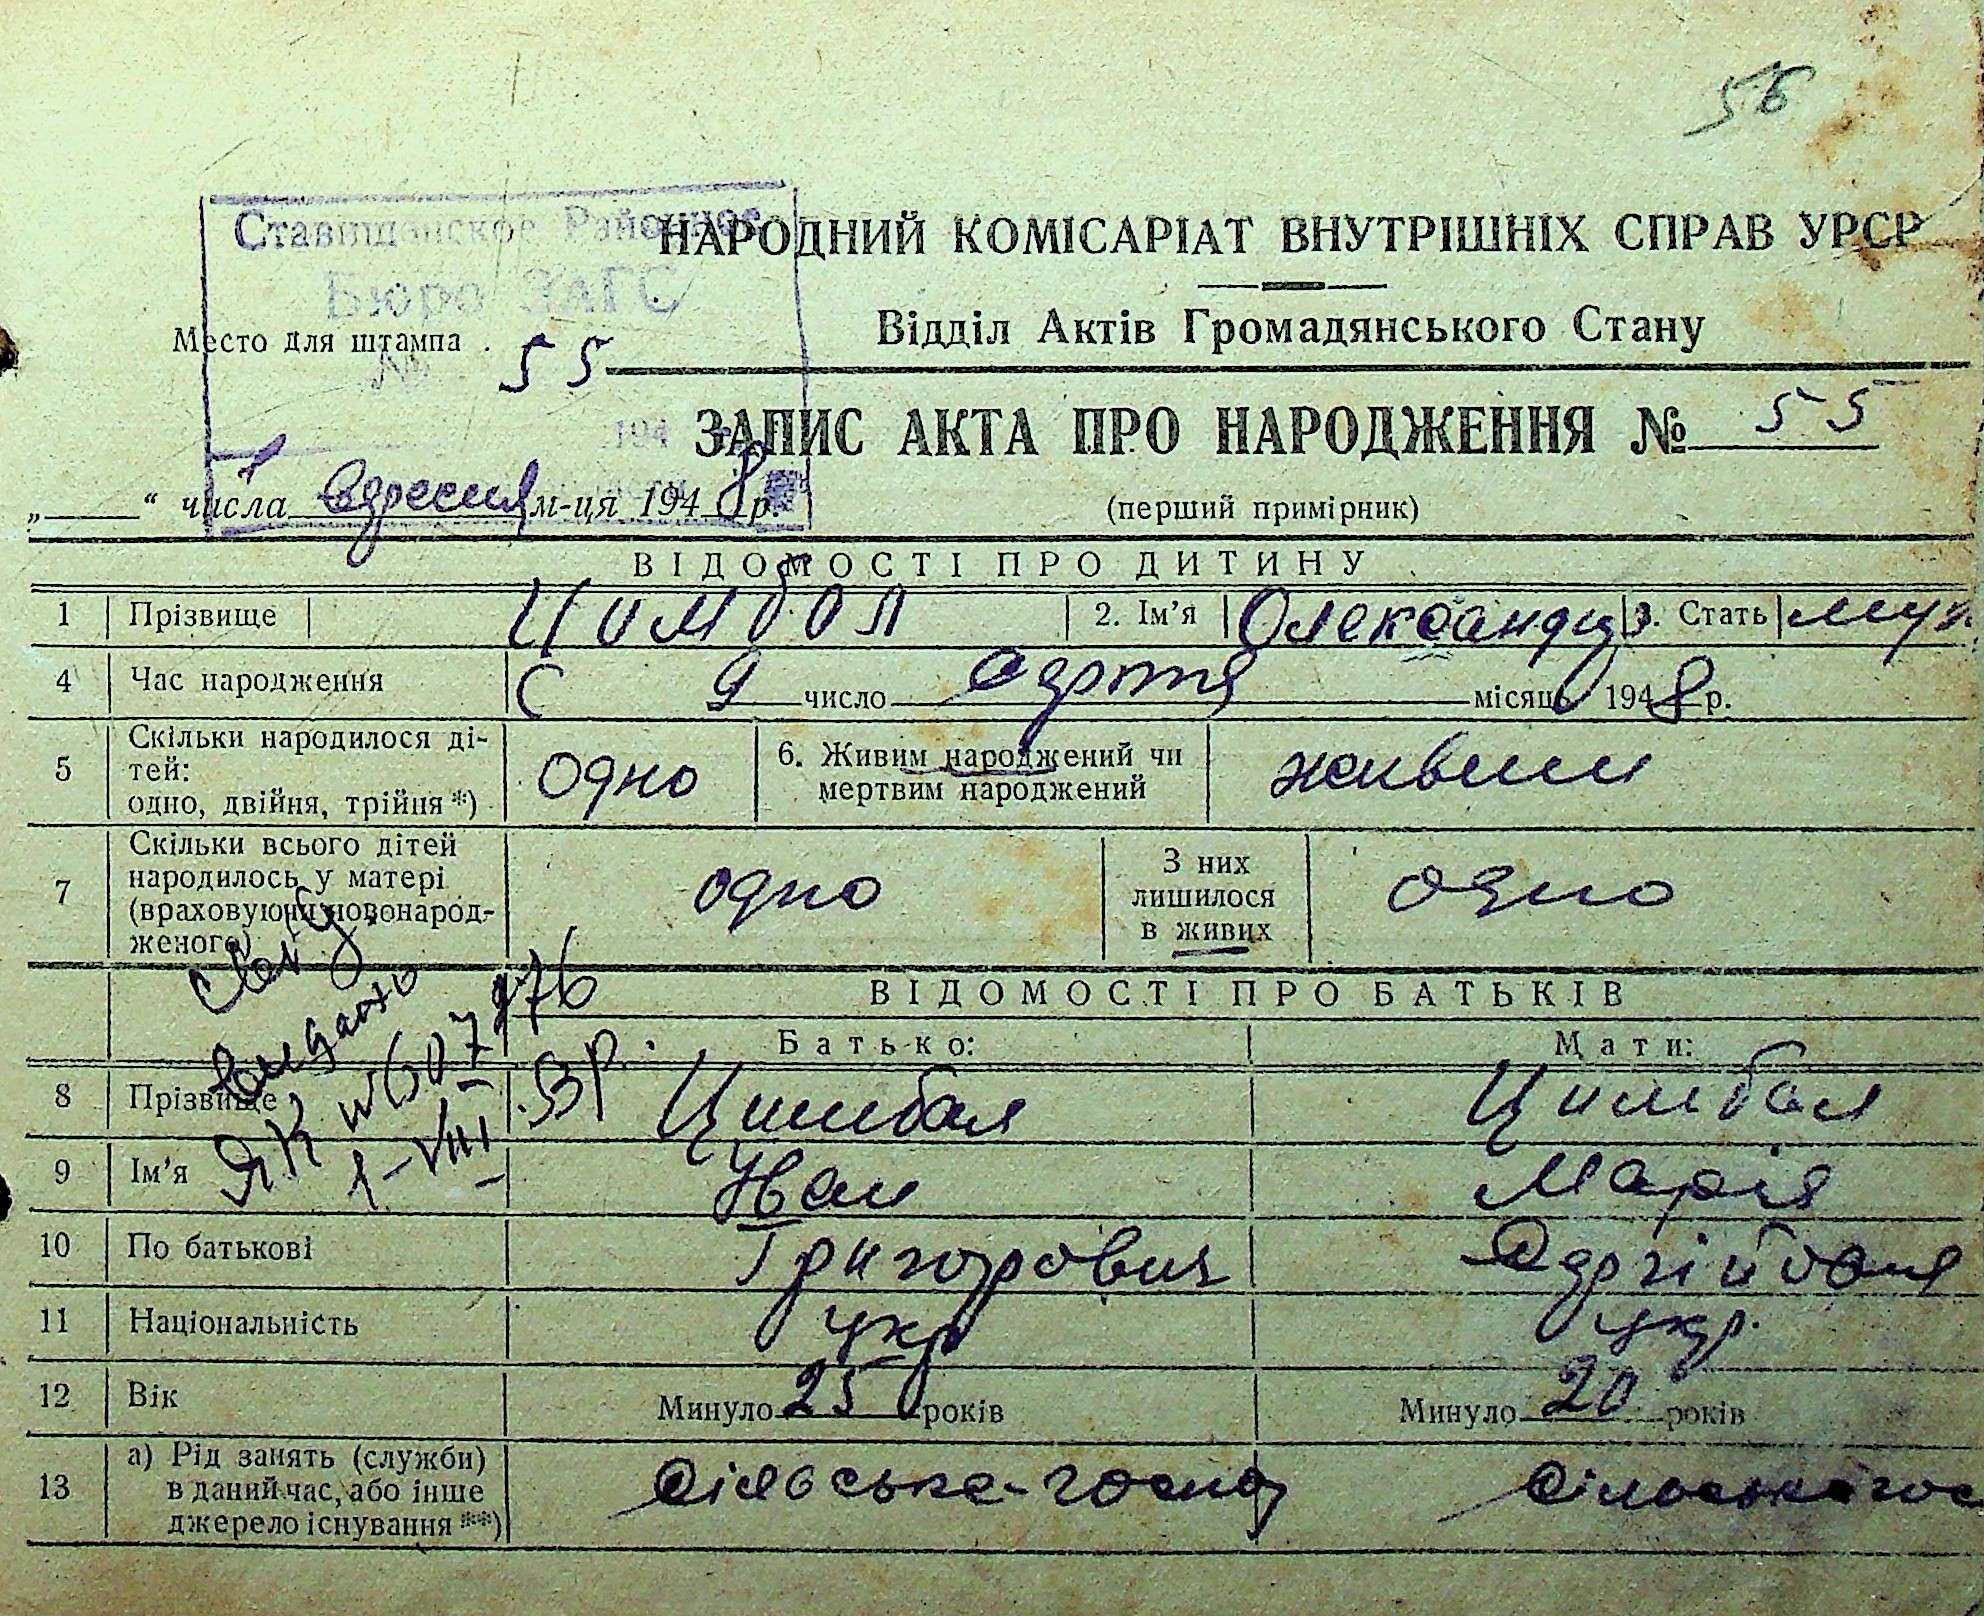 56
Ставищанское Районное
НАРОДНИЙ КОМІСАРІАТ ВНУТРІШНІХ СПРАВ УРСР
Бюро ЗАГС
Відділ Актів Громадянського Стану
Место для штампа
№ 55
194
ЗАПИС АКТА ПРО НАРОДЖЕННЯ № 55
„ “ 1 числа вересня м-ця 1948 р.
(перший примірник)
ВІДОМОСТІ ПРО ДИТИНУ
1 Прізвище Цимбал 2. Ім’я Олександр 3. Стать муж
4 Час народження С 9 число серпня місяць 1948 р.
5 Скільки народилося ді-
тей:
одно, двійня, трійня*) одно
6. Живим народжений чи
мертвим народжений живим
7 Скільки всього дітей
народилось у матері
(враховуючи новонарод-
женого) одно
З них
лишилося
в живих одно
ВІДОМОСТІ ПРО БАТЬКІВ
Батько: Мати:
8 Прізвище Цимбал Цимбал
9 Ім’я Іван Марія
10 По батькові Григорович Сергіївна
11 Національність укр укр.
12 Вік Минуло 25 років Минуло 20 років
13 а) Рід занять (служби)
в даний час, або інше
джерело існування**) сільське-господ сільське гос